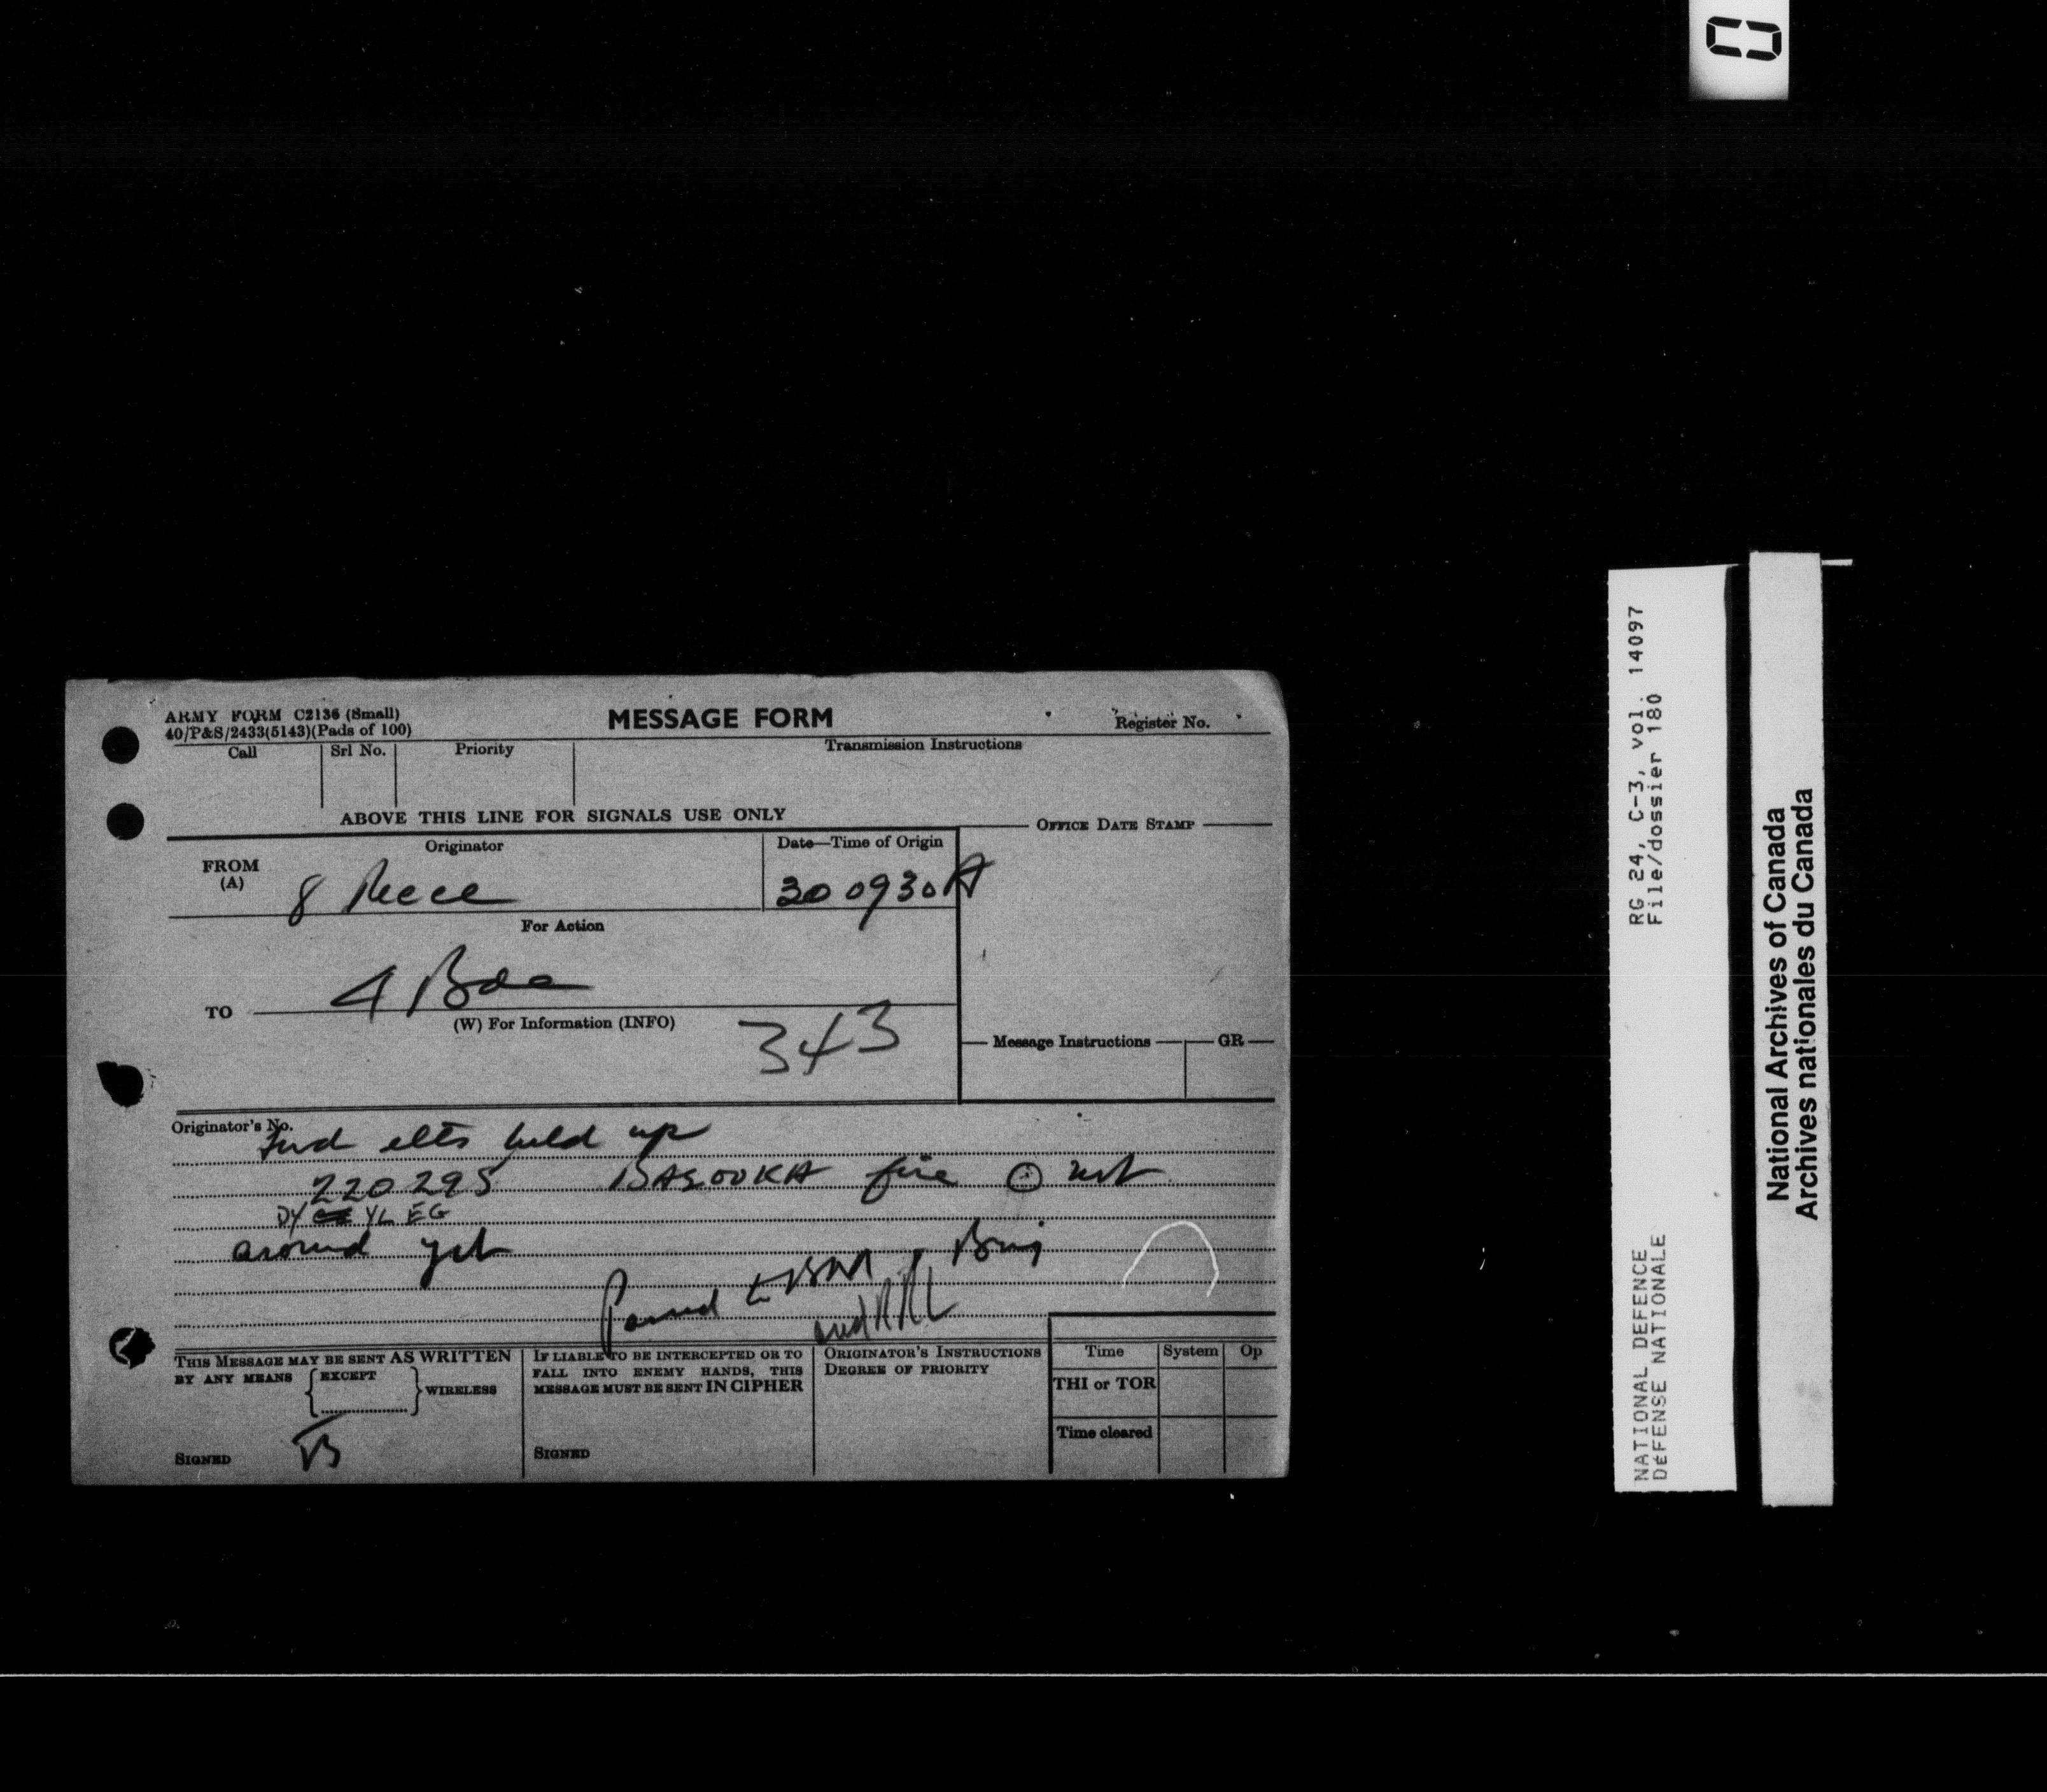 ARMY FORM C2136 (Small)
40/P&S/2433(5143)(Pads of 100)
MESSAGE FORM
Register No.
Call
Srl No.
Priority
Transmission Instructions
ABOVE THIS LINE FOR SIGNALS USE ONLY
OFFICE DATE STAMP
FROM
(A)
Originator
Date—Time of Origin
8 Recce
300930A
For Action
4 Bde
TO
(W) For Information (INFO)
343
Message Instructions
GR
Originator's No.
Fwd elts held up
220295 BASOOKA fire ⊙ not
DY YL EG
around yet
Passed to BM, Brig
and RRL
THIS MESSAGE MAY BE SENT AS WRITTEN
BY ANY MEANS { EXCEPT } WIRELESS
SIGNED
IF LIABLE TO BE INTERCEPTED OR TO
FALL INTO ENEMY HANDS, THIS
MESSAGE MUST BE SENT IN CIPHER
SIGNED
ORIGINATOR'S INSTRUCTIONS
DEGREE OF PRIORITY
Time
System
Op
THI or TOR
Time cleared
RG 24, C-3, vol. 14097
File/dossier 180
NATIONAL DEFENCE
DÉFENSE NATIONALE
National Archives of Canada
Archives nationales du Canada